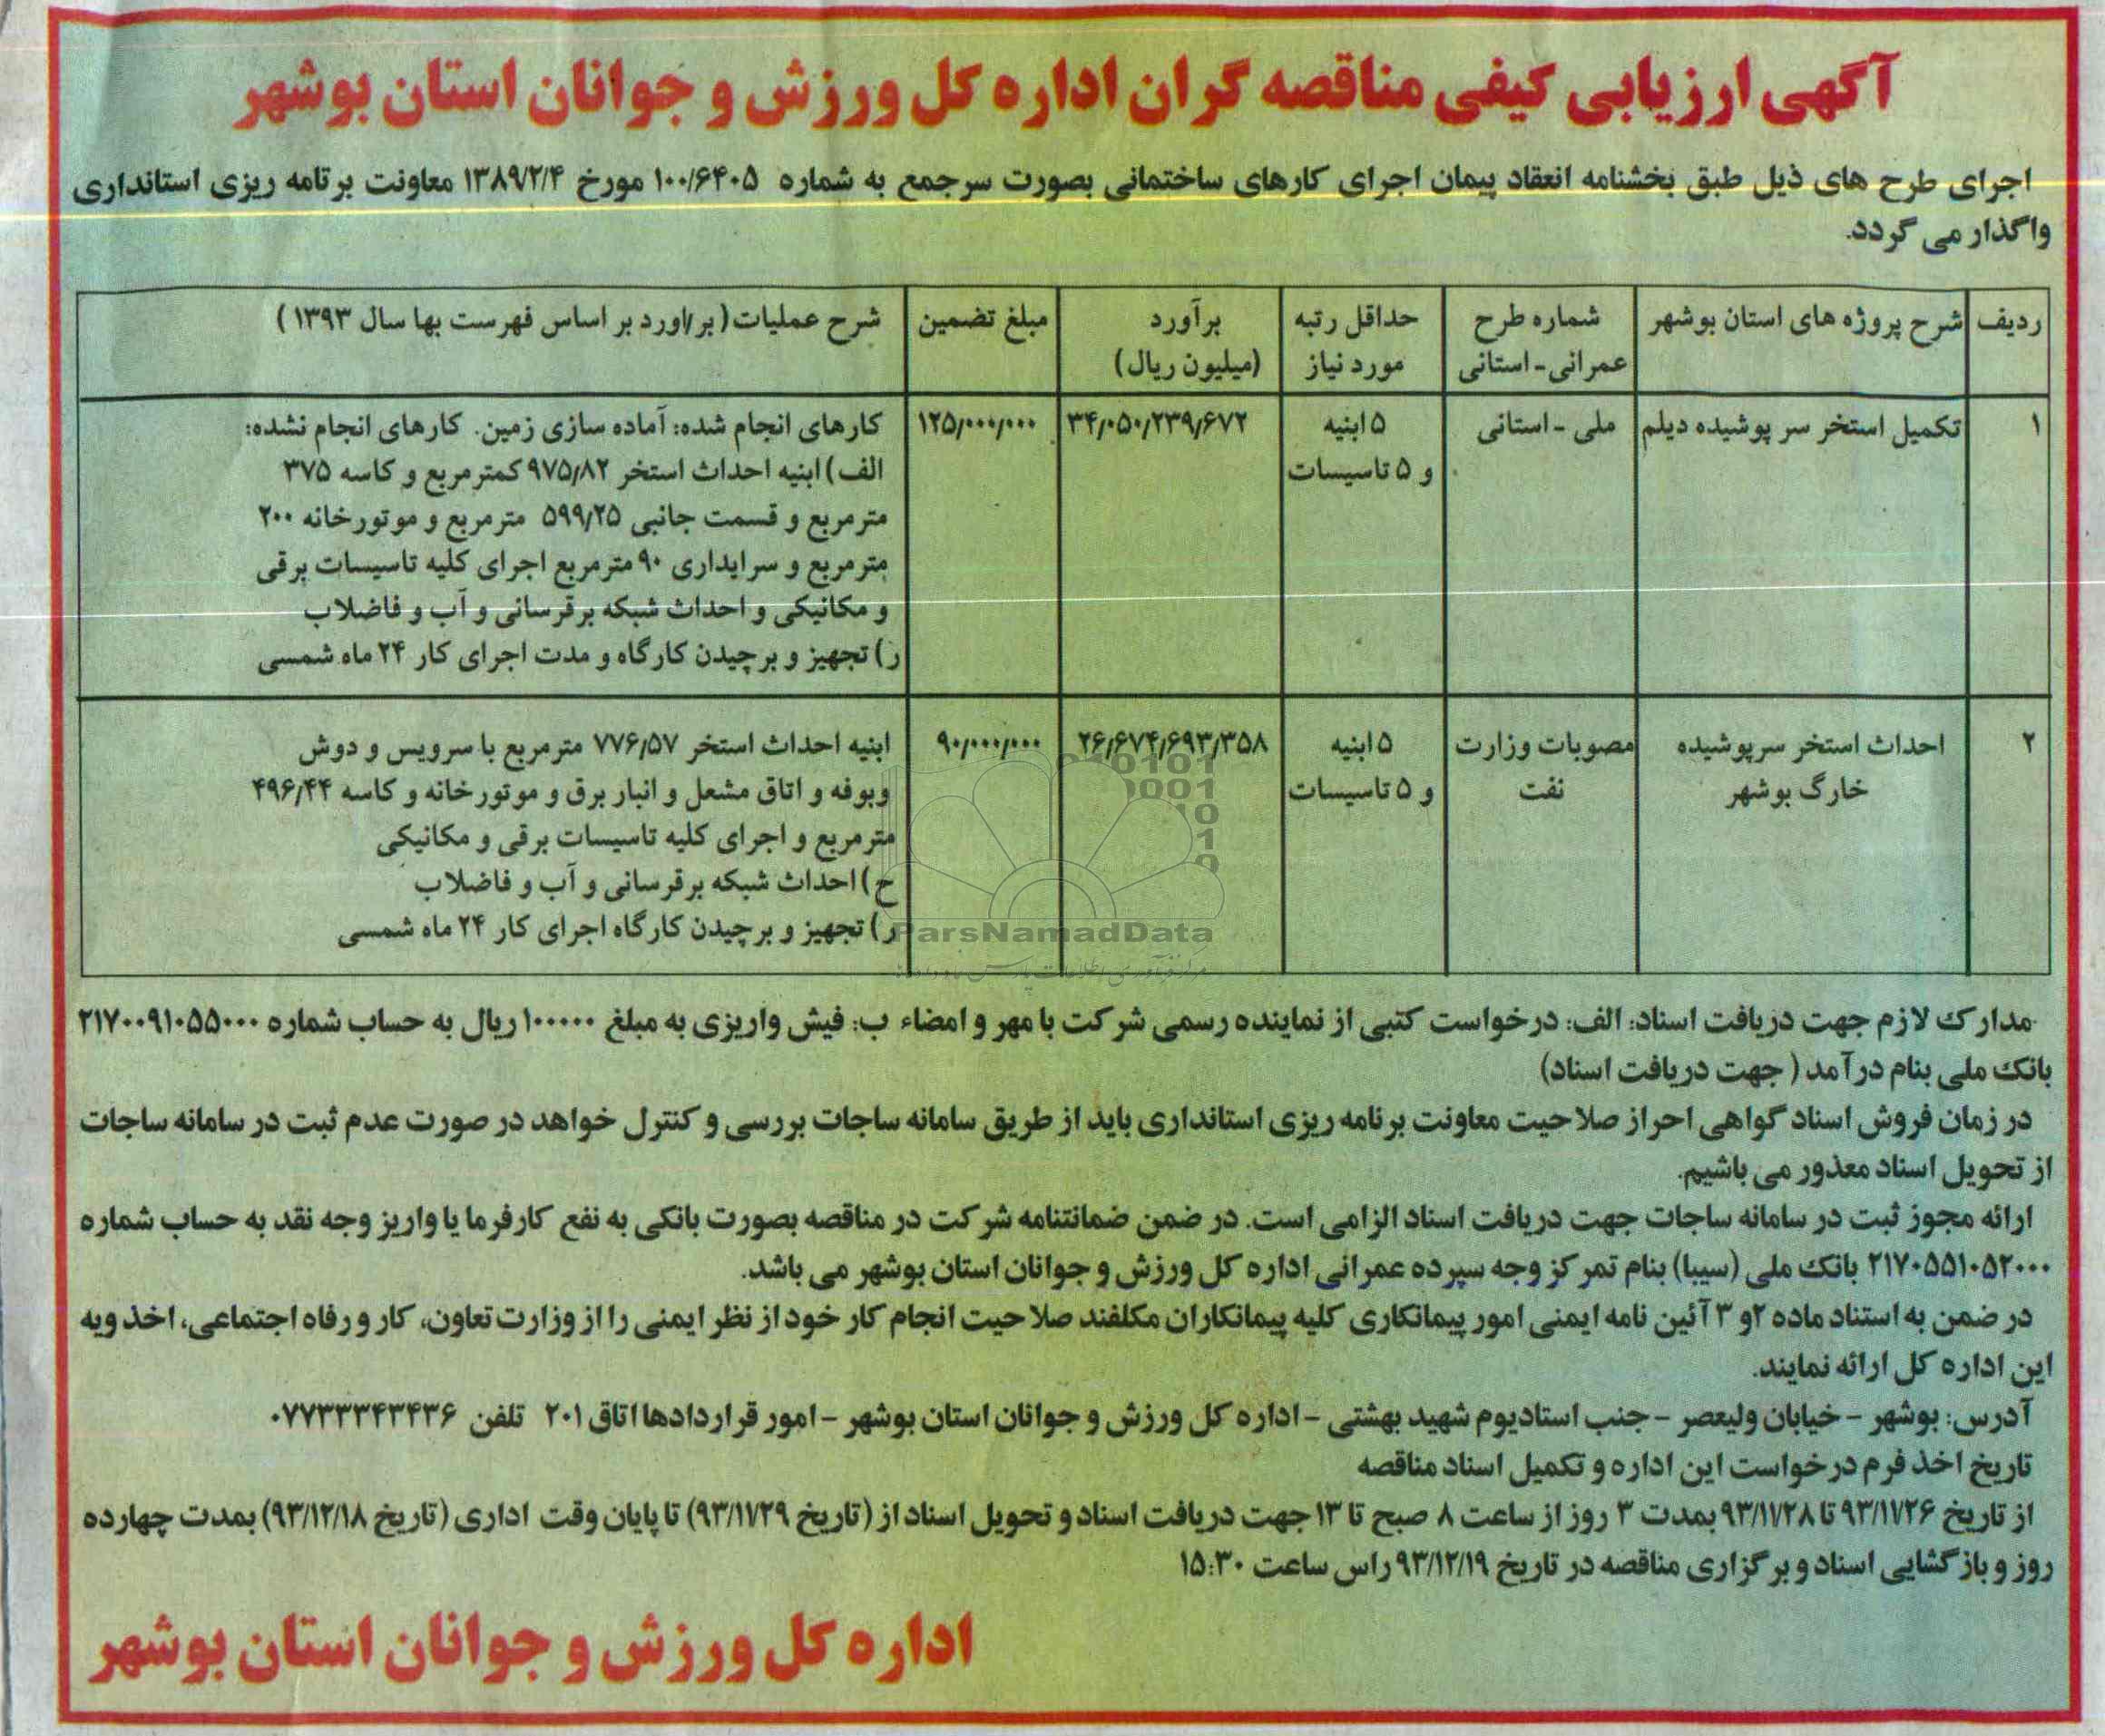 آگهی ارزیابی کیفی مناقصه گران اداره کل ورزش و جوانان استان بوشهر
اجرای طرح های ذیل طبق بخشنامه انعقاد پیمان اجرای کارهای ساختمانی بصورت سرجمع به شماره ۱۰۰/۶۴۰۵ مورخ ۱۳۸۹/۲/۴ معاونت برنامه ریزی استانداری
واگذار می گردد.
ردیف
شرح پروژه های استان بوشهر
شماره طرح
عمرانی - استانی
حداقل رتبه
مورد نیاز
برآورد
(میلیون ریال)
مبلغ تضمین
شرح عملیات (برآورد بر اساس فهرست بها سال ۱۳۹۳)
۱
تکمیل استخر سر پوشیده دیلم
ملی - استانی
۵ ابنیه
و ۵ تاسیسات
۳۴/۰۵۰/۲۳۹/۶۷۲
۱۲۵/۰۰۰/۰۰۰
کارهای انجام شده: آماده سازی زمین. کارهای انجام نشده:
الف) ابنیه احداث استخر ۹۷۵/۸۲ کمترمربع و کاسه ۳۷۵
مترمربع و قسمت جانبی ۵۹۹/۲۵ مترمربع و موتورخانه ۲۰۰
مترمربع و سرایداری ۹۰ مترمربع اجرای کلیه تاسیسات برقی
و مکانیکی و احداث شبکه برقرسانی و آب و فاضلاب
ر) تجهیز و برچیدن کارگاه و مدت اجرای کار ۲۴ ماه شمسی
۲
احداث استخر سرپوشیده
خارگ بوشهر
مصوبات وزارت
نفت
۵ ابنیه
و ۵ تاسیسات
۲۶/۶۷۴/۶۹۳/۳۵۸
۹۰/۰۰۰/۰۰۰
ابنیه احداث استخر ۷۷۶/۵۷ مترمربع با سرویس و دوش
وبوفه و اتاق مشعل و انبار برق و موتورخانه و کاسه ۴۹۶/۴۴
مترمربع و اجرای کلیه تاسیسات برقی و مکانیکی
ح) احداث شبکه برقرسانی و آب و فاضلاب
ر) تجهیز و برچیدن کارگاه اجرای کار ۲۴ ماه شمسی
ParsNamadData
مدارک لازم جهت دریافت اسناد: الف: درخواست کتبی از نماینده رسمی شرکت با مهر و امضاء ب: فیش واریزی به مبلغ ۱۰۰۰۰۰ ریال به حساب شماره ۲۱۷۰۰۹۱۰۵۵۰۰۰
بانک ملی بنام درآمد (جهت دریافت اسناد)
در زمان فروش اسناد گواهی احراز صلاحیت معاونت برنامه ریزی استانداری باید از طریق سامانه ساجات بررسی و کنترل خواهد در صورت عدم ثبت در سامانه ساجات
از تحویل اسناد معذور می باشیم.
ارائه مجوز ثبت در سامانه ساجات جهت دریافت اسناد الزامی است. در ضمن ضمانتنامه شرکت در مناقصه بصورت بانکی به نفع کارفرما یا واریز وجه نقد به حساب شماره
۲۱۷۰۵۵۱۰۵۲۰۰۰ بانک ملی (سیبا) بنام تمرکز وجه سپرده عمرانی اداره کل ورزش و جوانان استان بوشهر می باشد.
در ضمن به استناد ماده ۲و ۳ آئین نامه ایمنی امور پیمانکاری کلیه پیمانکاران مکلفند صلاحیت انجام کار خود از نظر ایمنی را از وزارت تعاون، کار و رفاه اجتماعی، اخذ وبه
این اداره کل ارائه نمایند.
آدرس: بوشهر - خیابان ولیعصر - جنب استادیوم شهید بهشتی - اداره کل ورزش و جوانان استان بوشهر - امور قراردادها اتاق ۲۰۱ تلفن ۰۷۷۳۳۳۴۳۴۳۶
تاریخ اخذ فرم درخواست این اداره و تکمیل اسناد مناقصه
از تاریخ ۹۳/۱۱/۲۶ تا ۹۳/۱۱/۲۸ بمدت ۳ روز از ساعت ۸ صبح تا ۱۳ جهت دریافت اسناد و تحویل اسناد از (تاریخ ۹۳/۱۱/۲۹) تا پایان وقت اداری (تاریخ ۹۳/۱۲/۱۸) بمدت چهارده
روز و بازگشایی اسناد و برگزاری مناقصه در تاریخ ۹۳/۱۲/۱۹ راس ساعت ۱۵:۳۰
اداره کل ورزش و جوانان استان بوشهر